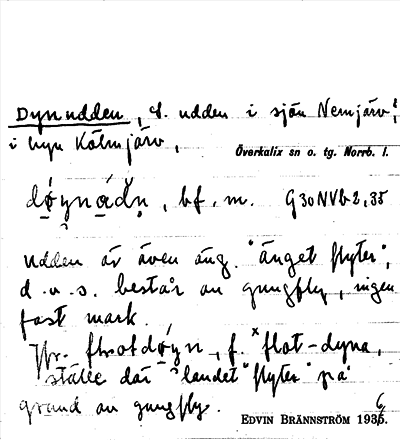 Dynudden, S. udden i sjön Nemjärv;
i byn Kölmjärv,
Överkalix sn o. tg. Norrb. l.
dǫ́ynạdn̥, bf. m. G30NVb2,35
udden är även äng. "änget flyter",
d.v.s. består av gungfly, ingen
fast mark.
Jfr. flɷtdǫ́yn, f. ˣflot-dyna,
ställe där "landet" flyter på
grund av gungfly.
EDVIN BRÄNNSTRÖM 1936.